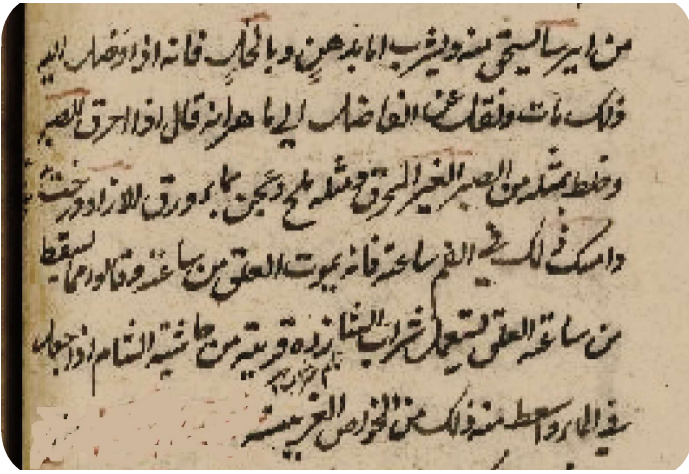 من ايرسا يستحق منه ويشرب اما بدهن وبالخل فانه اذا وصل اليه
ذلك مات ونقل عن الفاضل ابي ماهر انه قال اذا احرق الصبر
وخلط بمثله من الصبر الغير المحرق ومثله ملح وعجن بماء ورق الازاد ورخت
وامسك ذلك في الفم ساعة فانه يموت العلق من ساعته وقالوا مما يسقط
من ساعته العلق يستعمل شراب قرية من حاشية الشام اذا جعل
في الماء منه ذلك من الخواص الغريبة